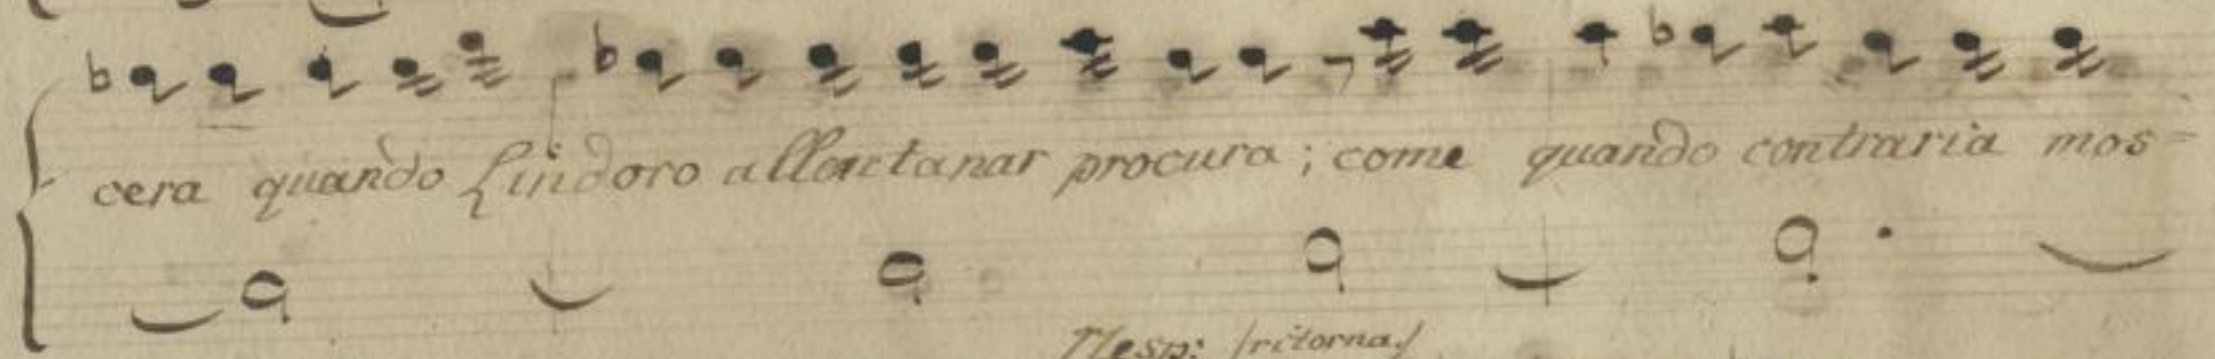 cera quando Lindoro allontanar procura; come quando contraria mos=
Nesp: /ritorna/